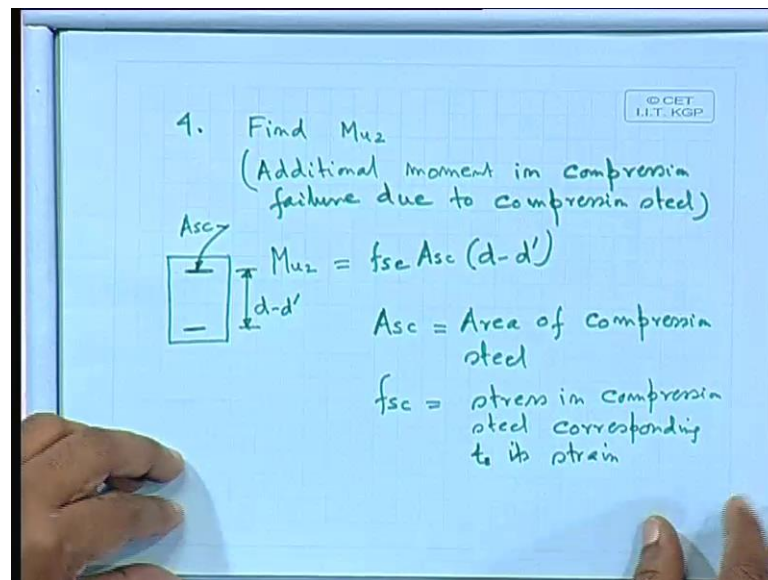 © CET
I.I.T. KGP
4. Find Mu2
(Additional moment in compression
failure due to compression steel)
Asc
Mu2 = fsc Asc (d-d')
d-d'
Asc = Area of compression
steel
fsc = stress in compression
steel corresponding
to its strain